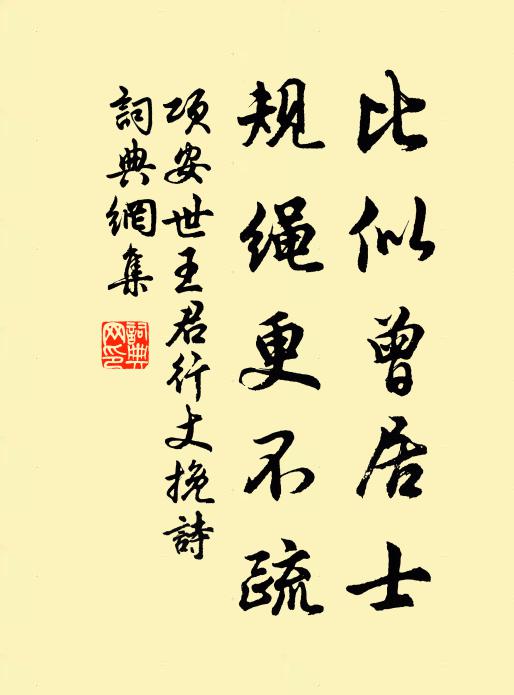 比似曾居士
规绳更不疏
项安世王君行丈挽詩
詞典網集
詞典網印